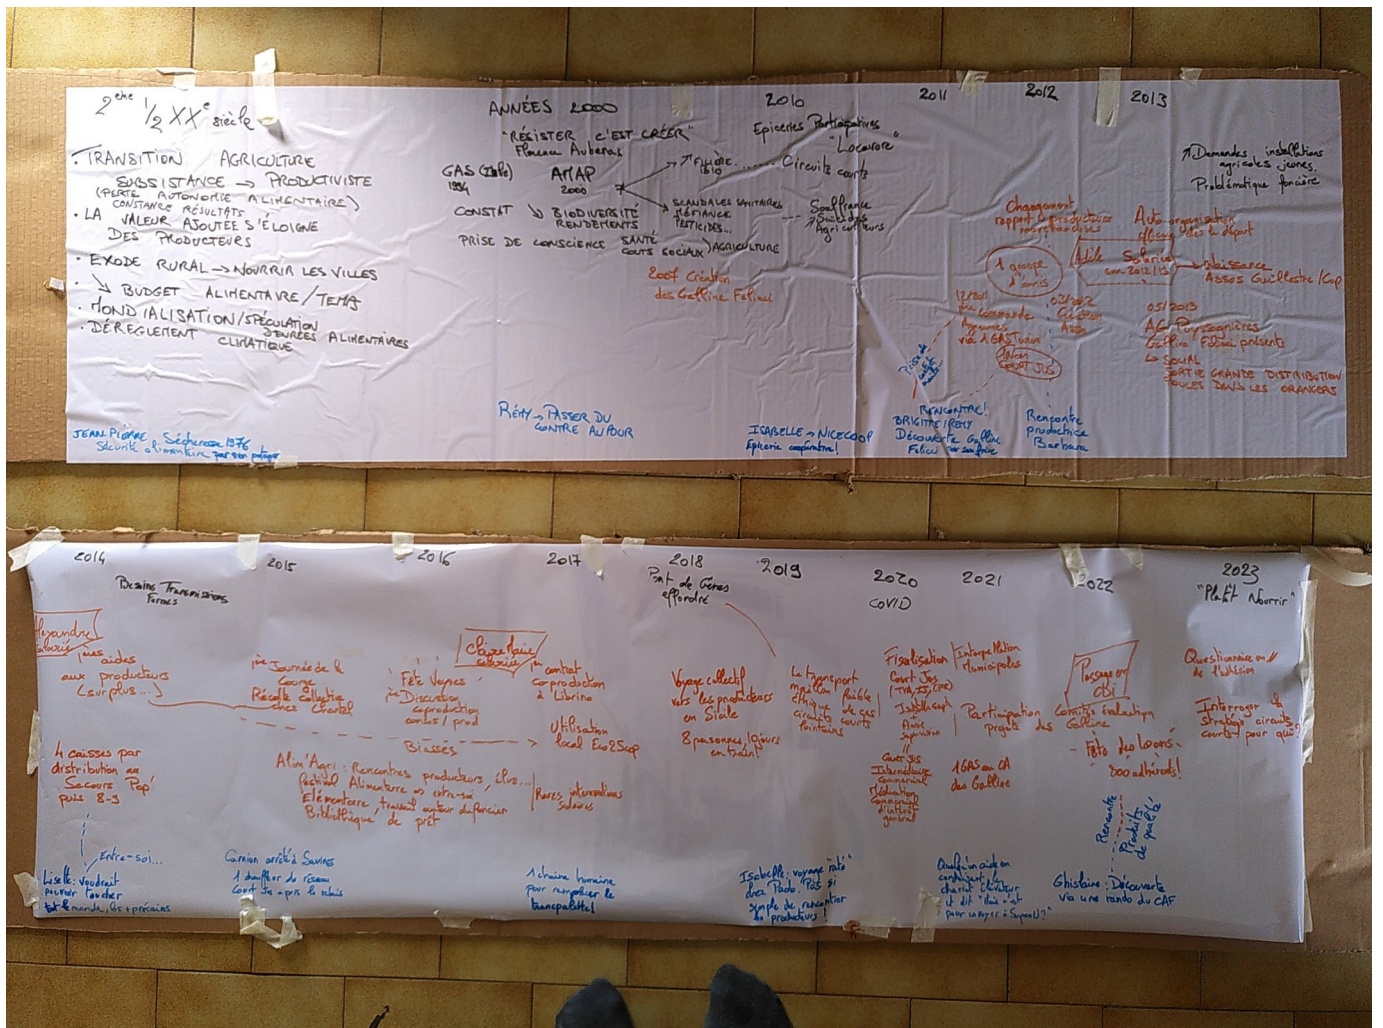 2ème 1/2 XXe siècle
• TRANSITION AGRICULTURE
SUBSISTANCE → PRODUCTIVISTE
(PERTE AUTONOMIE ALIMENTAIRE)
CONSTANCE RÉSULTATS
• LA VALEUR AJOUTÉE S'ÉLOIGNE
DES PRODUCTEURS
• EXODE RURAL → NOURRIR LES VILLES
• ↘ BUDGET ALIMENTAIRE / TEMA
• MONDIALISATION/SPÉCULATION
DENRÉES ALIMENTAIRES
• DÉRÈGLEMENT CLIMATIQUE
JEAN-PIERRE → Sécheresse 1976
Sécurité alimentaire par son potager
ANNÉES 2000
"RÉSISTER C'EST CRÉER"
Florence Aubenas
GAS (Italie)
1994
AMAP
2000
↗ FILIÈRE BIO
SCANDALES SANITAIRES
MÉFIANCE
PESTICIDES...
CONSTAT ↘ BIODIVERSITÉ
RENDEMENTS
PRISE DE CONSCIENCE SANTÉ
COUTS SOCIAUX) AGRICULTURE
2007 Création
des Galline Felici
RÉMY → PASSER DU
CONTRE AU POUR
2010
Epiceries Participatives
"Locavore"
Circuits courts
Souffrance
↗ Suicides
Agriculteurs
ISABELLE → NICECOOP
Epicerie coopérative!
2011
12/2011
commande
Agrumes
via 1 GAS Turin
Prise de
RENCONTRE!
BRIGITTE/RÉMY
Découverte Galline
Felici
2012
Changement
rapport producteurs
marchandises
1 groupe
d'amis
02/2012
Création
Asso
1 NOM
COURT JUS
Rencontre
productrice
Barbara
2013
↗ Demandes installations
agricoles jeunes
Problématique foncière
Auto-organisation
efficace dès le départ
Adèle Salariée
2012/13
→ Naissance
Assos Guillestre/Gap
05/2013
AG Puysagnières
Galline Felici présents
↳ SOCIAL
SORTIE GRANDE DISTRIBUTION
POULES DANS LES ORANGERS
2014
Besoins Transmissions
Fermes
Alexandre
salarié
1ères aides
aux producteurs
(surplus...)
4 caisses par
distribution au
Secours Pop'
puis 8-9
Entre-soi...
Lisette: voudrait
pouvoir toucher
tout le monde, les + précaires
2015
1ère Journée de la
Courge
Récolte Collective
chez Chantal
Camion arrêté à Savines
1 chauffeur du réseau
Court Jus a pris le relais
2016
Fête Voynes
1ère Discussion
coproduction
conso/prod
Biassés
Alim'Agri: Rencontres producteurs, élus...
Festival Alimenterre
Elémenterre, travail autour du foncier
Bibliothèque de prêt
2017
Claire Marie
salariée
1er contrat
coproduction
à Librino
Utilisation
local Eco2Scop
Rares interventions
scolaires
1 chaine humaine
pour remplacer le
transpalette!
2018
Pont de Gènes
effondré
Voyage collectif
vers les producteurs
en Sicile
8 personnes, 10 jours
en train!
2019
Le transport
maillon faible
éthique de ces
circuits courts
lointains
Isabelle: voyage "raté"
chez Paolo. Pas si
simple de rencontrer
les producteurs!
2020
COVID
Fiscalisation
Court Jus
(TVA, IS, CFE)
+
supervision
=
Court Jus
Intermédiaire
commercial
Médiation
commercial
d'intérêt
général
2021
Interpellation
Municipales
Participation
projets des
Galline
1 GAS au CA
des Galline
Quelqu'un aide en
conduisant le
chariot élévateur
et dit "Mais c'est
pour envoyer à Super U?"
2022
Passage en
CDI
Comités évaluation
Fête des 10 ans
300 adhérents!
Rencontre
Produits
de qualité
Ghislaine: Découverte
via une rando du CAF
2023
"Plutôt Nourrir"
Questionnaire en //
de l'adhésion
Interroger la
stratégie circuits
courts pour qui?